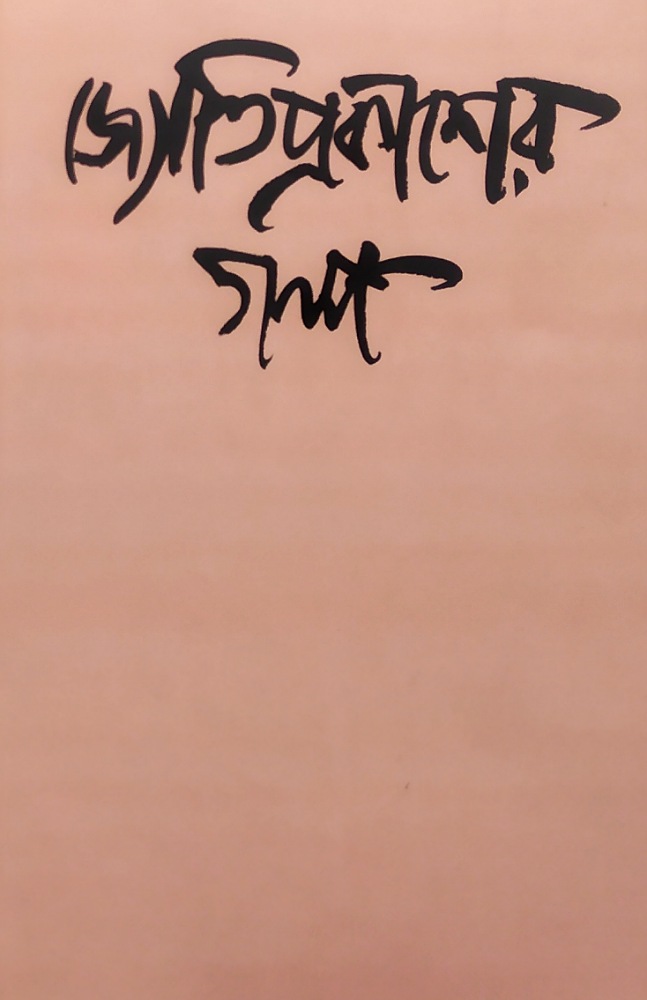 জ্যোতিপ্রকাশের
গল্প